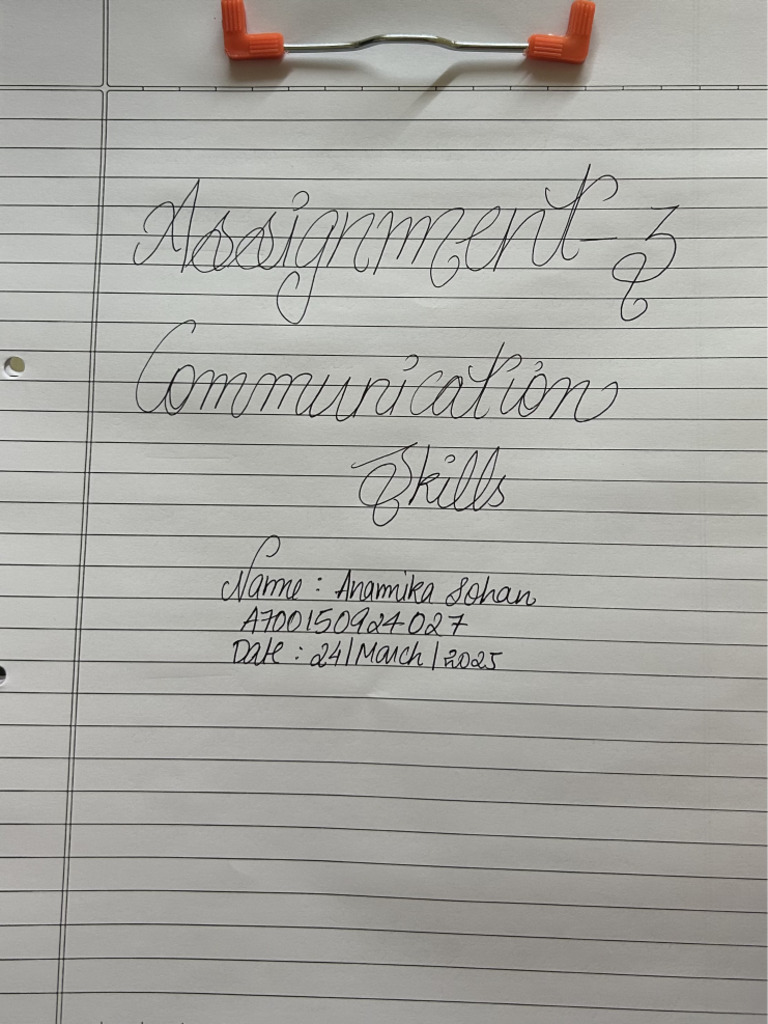 Assignment-3
Communication
Skills
Name : Anamika Sohan
A700150924027
Date : 24/March/2025